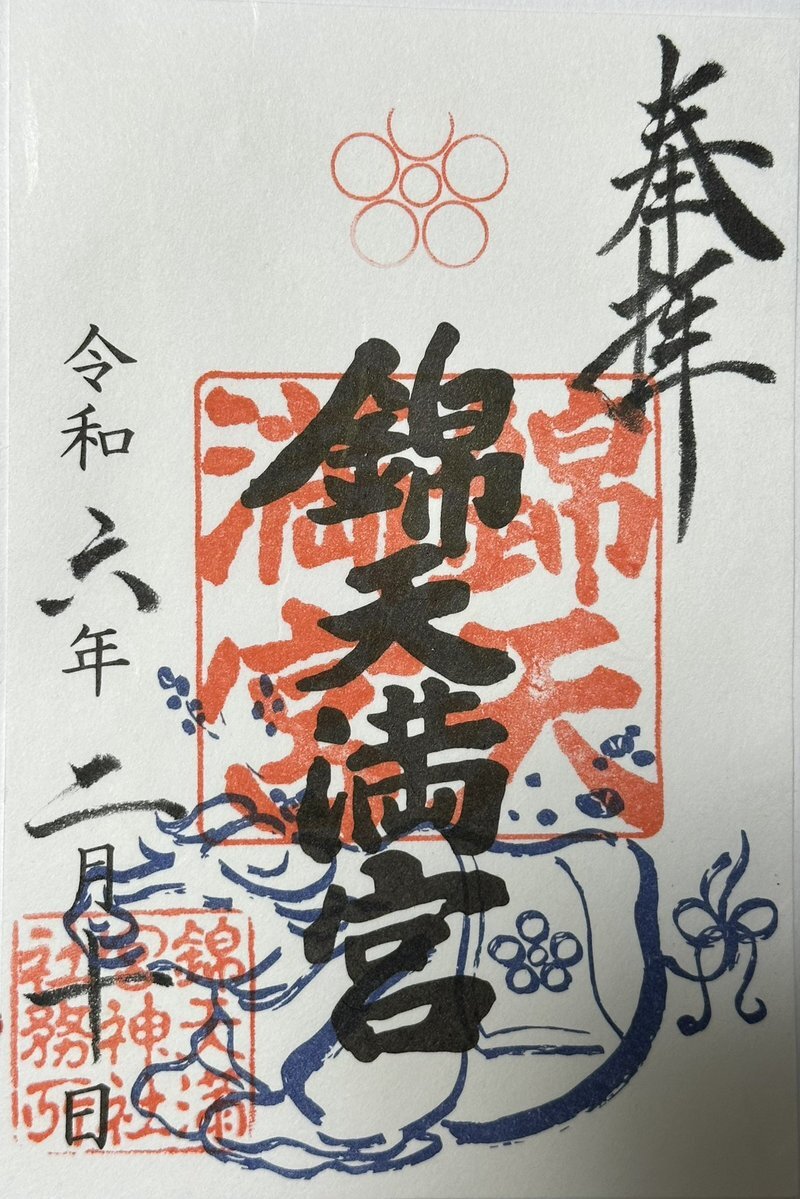 奉拝
錦天満宮
錦天
満宮
令和六年二月十日
錦天満
宮神社
社務所